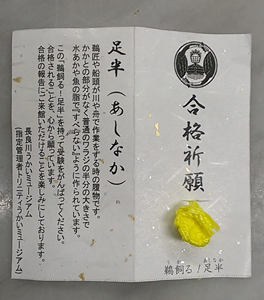 合格祈願
うか　あしなか
鵜飼る！足半
足半（あしなか）
鵜匠や船頭が川や舟で作業をする時の履物です。
かかとの部分がなく普通のワラジの半分の大きさで
水あかや魚の脂で『すべらない』ように作られています。
この「鵜飼る！足半」を持って受験をがんばってください。
合格されることを、心から願っています。
合格の報告にご来館いただけることを楽しみにしております。
長良川うかいミュージアム
（指定管理者　うかいミュージアム）